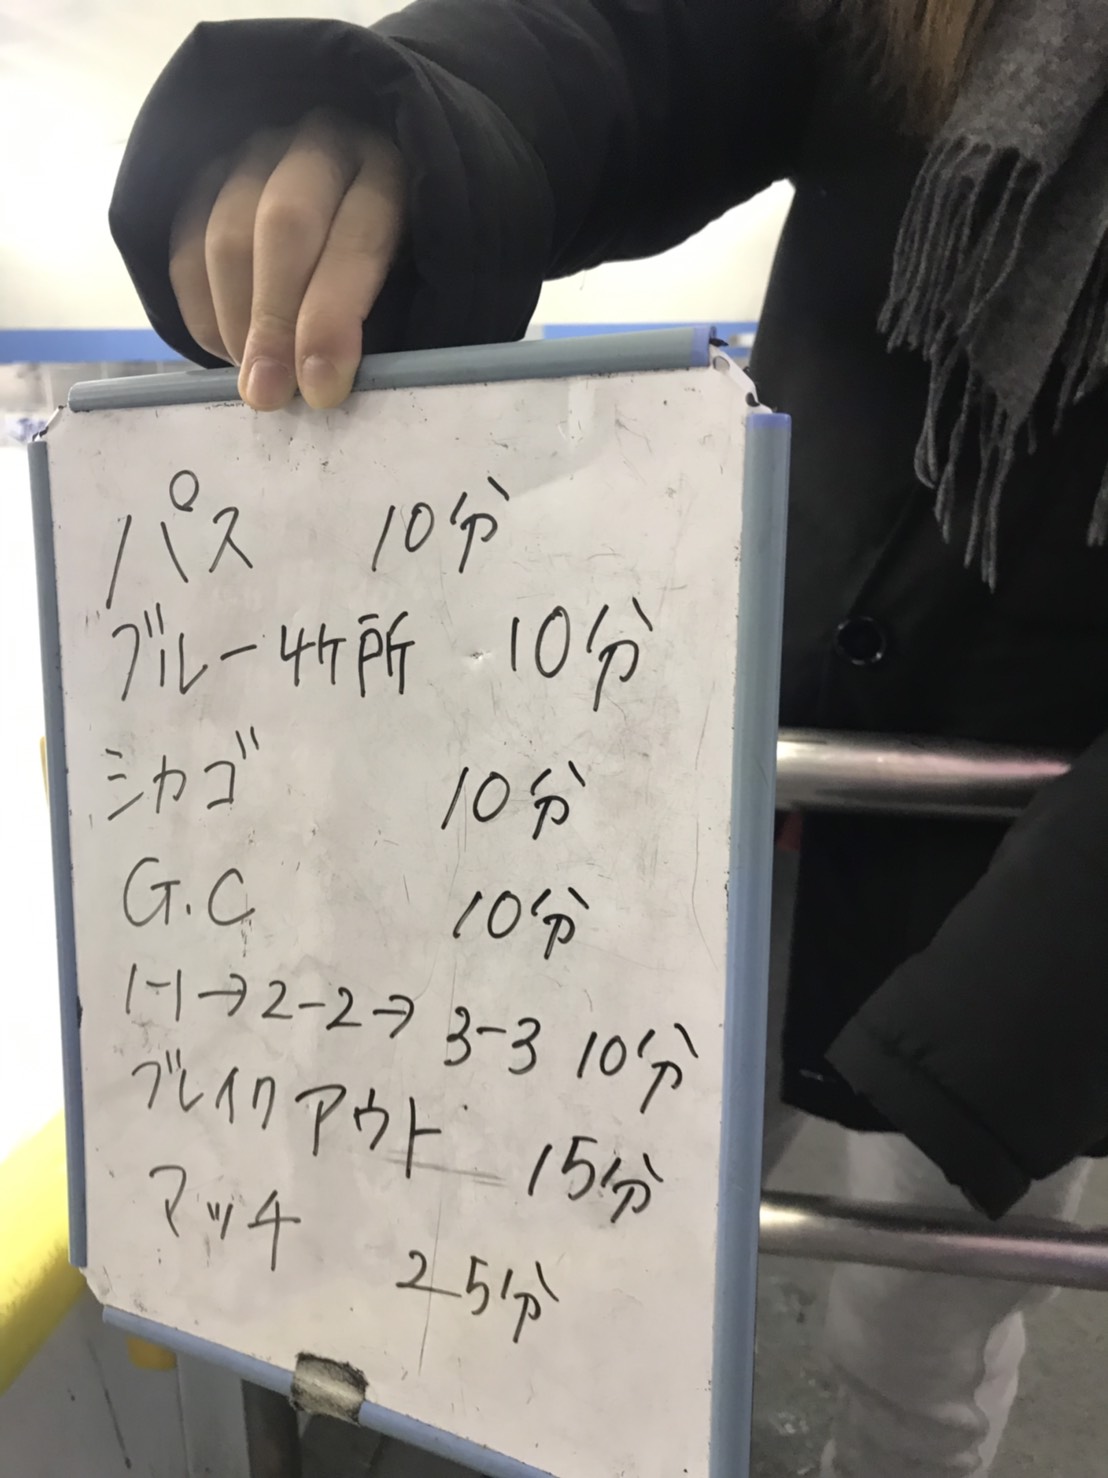 パス 10分
ブルー4ケ所 10分
シカゴ 10分
G.C 10分
1-1→2-2→3-3 10分
ブレイクアウト 15分
マッチ 25分